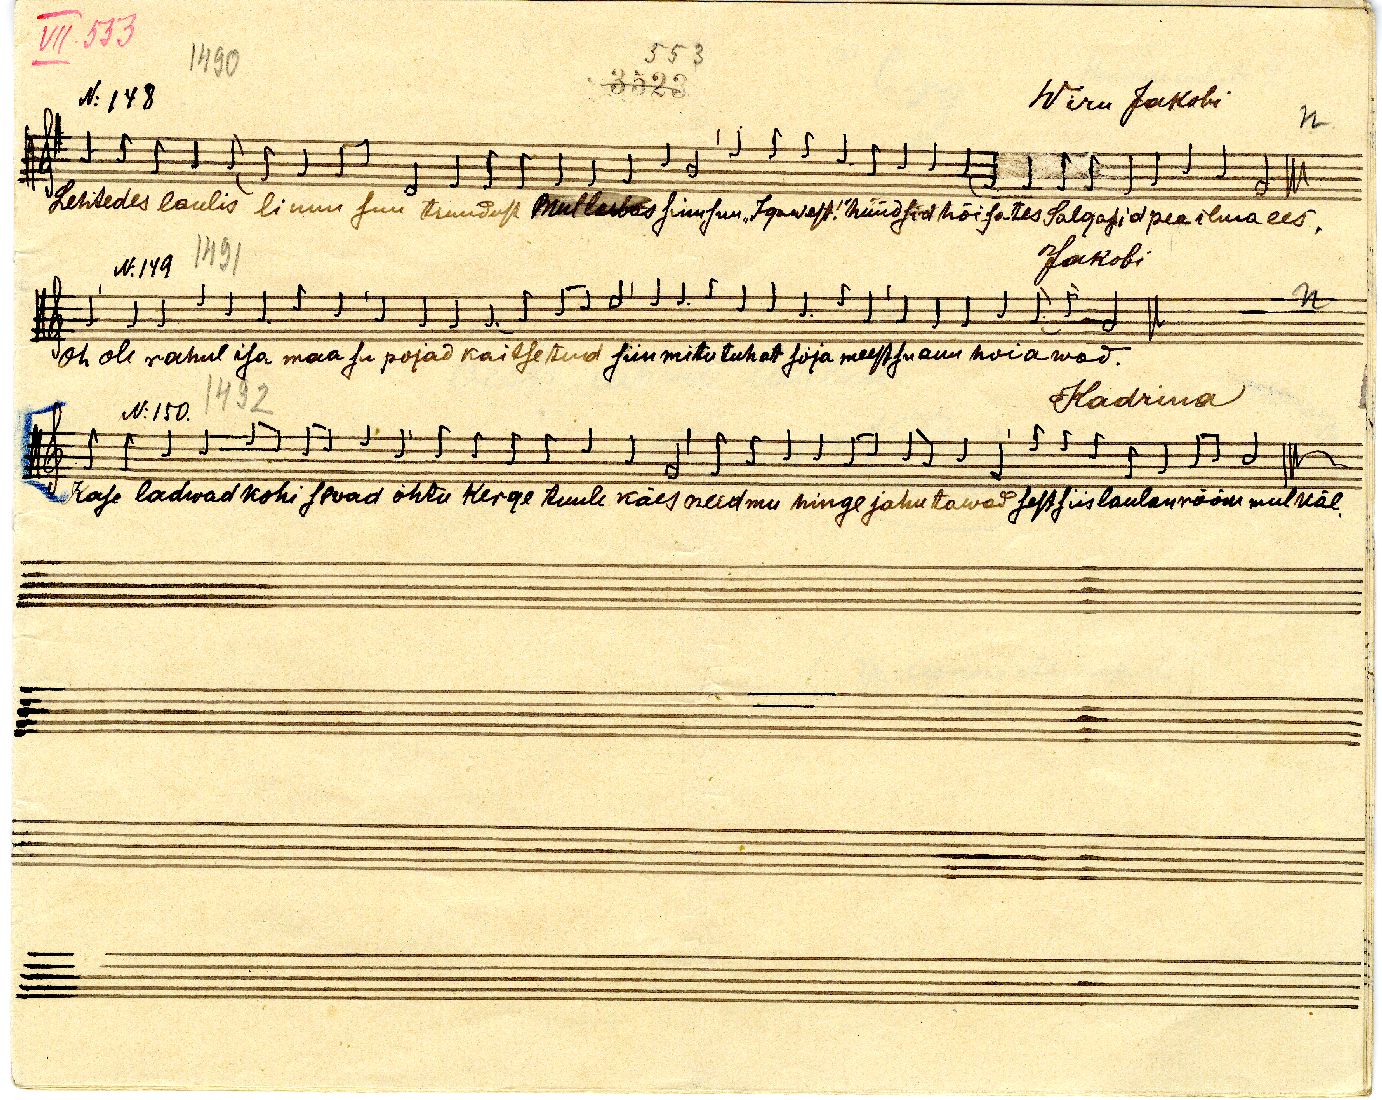 VII. 553
1490
553
3523
N: 148
Wiru Jakobi
n
Lehtedes laulis linnu suu truudust sinu suu „Igawest!" hüüdsid hõisates Salgasid pea ilma ees.
N: 149 1491
Jakobi
n
Oh ole rahul isa maa su pojad kaitsetud siin mitu tuhat sõja meest su auu hoiawad.
N: 150. 1492
Kadrina
Kase ladwad kohisewad õhtu kerge tuule käes need mu hinge jahutawad sest siis laulan rõõm mul käe.